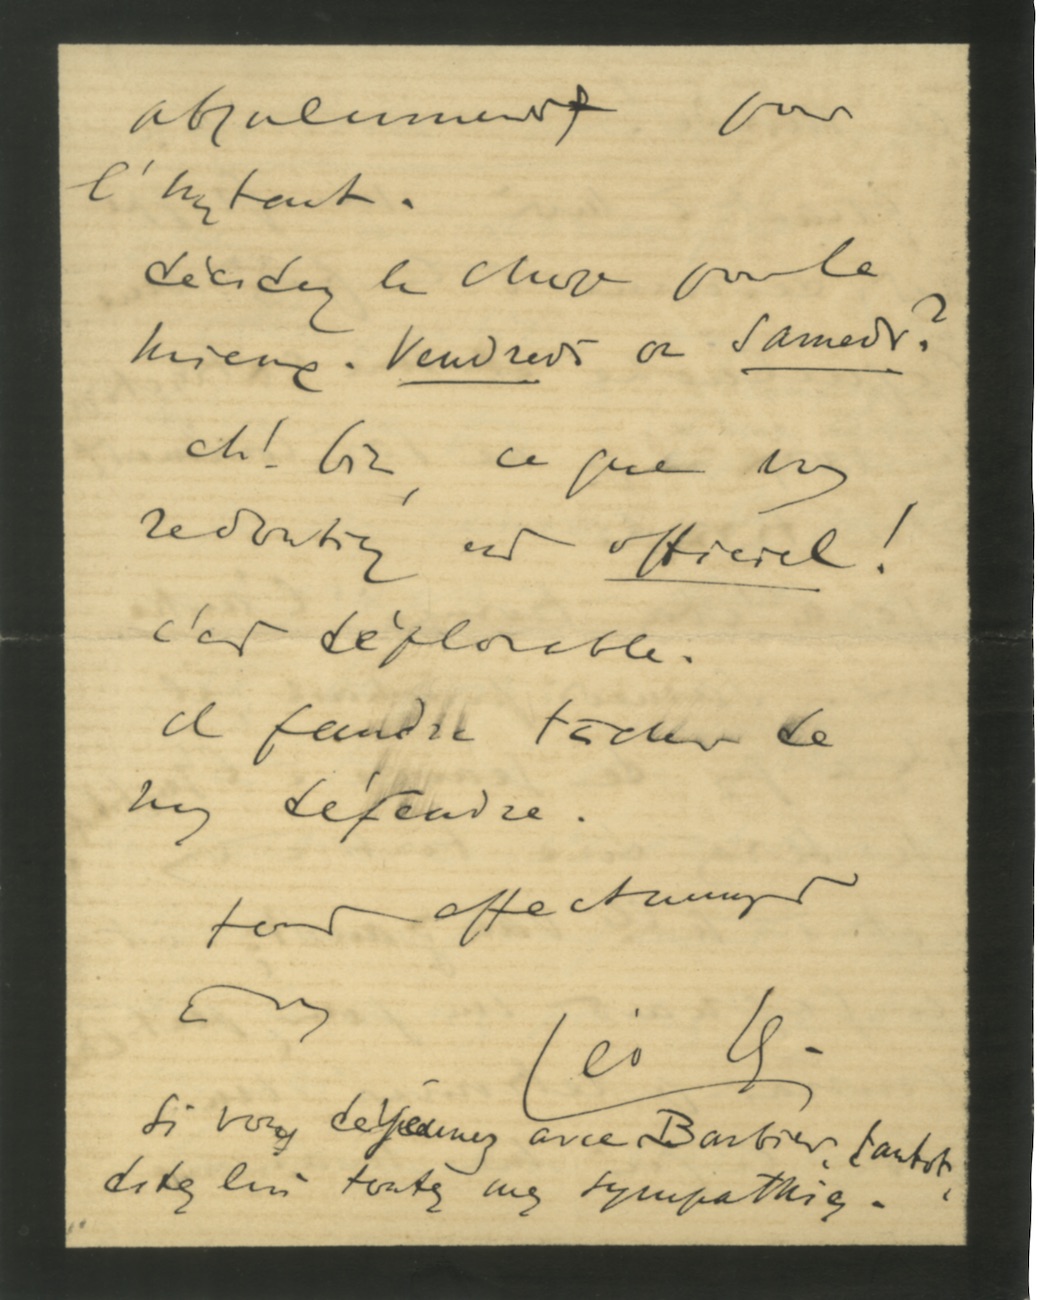 absolument pour
l'instant.
décidez la chose pour le
mieux. Vendredi ou Samedi?
eh! bien, ce que vous
redoutiez est officiel!
c'est déplorable.
il faudra tâcher de
nous défendre.
tout affectueusement
à vous
Léo
Si vous déjeunez avec Barbier, tantôt,
dites lui toutes mes sympathies.